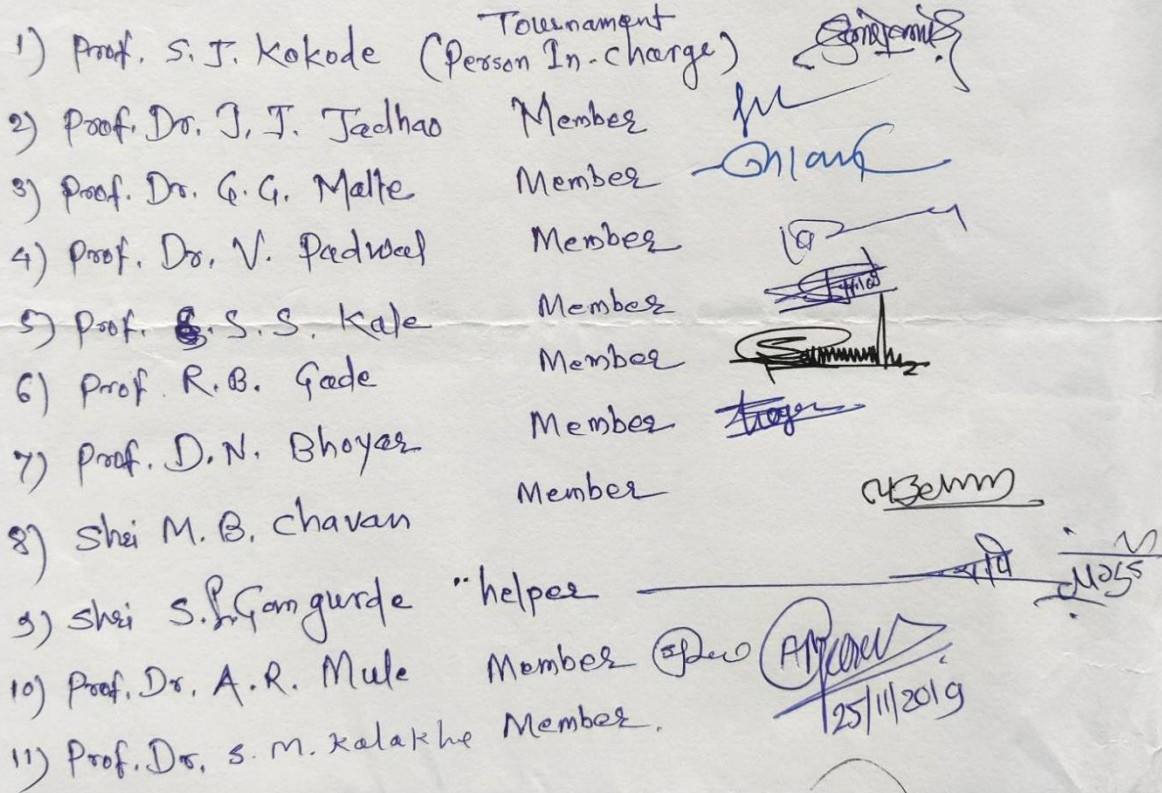 1) Prof. S. J. Kokode (Tournament Person In-charge)
2) Prof. Dr. J. J. Jadhao Member
3) Prof. Dr. G. G. Malte Member
4) Prof. Dr. V. Padwal Member
5) Prof. S. S. Kale Member
6) Prof. R. B. Gade Member
7) Prof. D. N. Bhoyar Member
8) Shri M. B. Chavan Member
9) Shri S. L. Gangurde "helper
10) Prof. Dr. A. R. Mule Member
25/11/2019
11) Prof. Dr. S. M. Kalakhe Member.